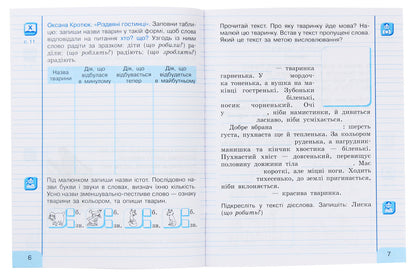 с. 11
Оксана Кротюк. «Різдвяні гостинці». Заповни табли-
цю: запиши назви тварин у такій формі, щоб слова
відповідали на питання хто? що? Узгодь із ним
слово радіти за зразком: діти (що робили?) ра-
діли; діти (що роблять?) радіють, (що зроблять?)
зрадіють.
Назва тварини
Дія, що відбулася в минулому
Дія, що відбувається тепер
Дія, що відбудеться в майбутньому
Під малюнком запиши назви істот. Послідовно на-
зви букви і звуки в словах, визнач їхню кількість.
Усно назви зменшувально-пестливе слово — ознаку
тварини за кольором, та опиши тварин.
б. б. б. б.
зв. зв. зв. зв.
6
Прочитай текст. Про яку тваринку йде мова? На-
малюй цю тваринку. Встав у текст пропущені слова.
Який це текст за метою висловлювання?
— тваринка
гарненька. У мордоч-
ка тоненька, а вушка на ма-
ківці гостренькі. Зубоньки
біленькі,
носик чорненький. Очі
у , ніби намистинки, й дивиться
ласкаво, ніби усміхається.
Добре вбрана : шерсть
густа, пухнаста ще й тепленька. За кольором
руденька, а нагрудник-
манишка та кінчик хвостика — біленькі.
Пухнастий хвіст — довгенький, перевищує
половину довжини тіла . Має
короткі, але міцні ноги. Ходить
тихесенько, до землі пригинається,
ніби вклоняється.
— красива тваринка.
Підкресліть у тексті дієслова. Запишіть: Лиска
(що робить?)
7